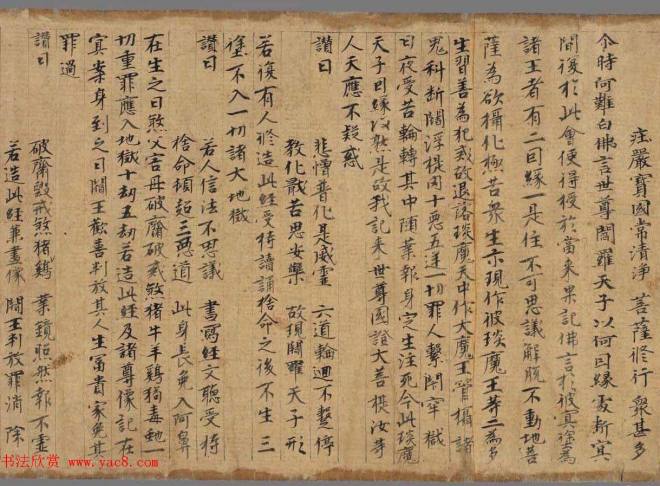 莊嚴寶國常清淨 菩薩修行眾甚多
尒時阿難白佛言世尊閻羅天子以何因緣處斷冥
間復於此會便得授於當來果記佛言於彼冥途為
諸王者有二因緣一是住不可思議解脫不動地菩
薩為欲攝化極苦眾生示現作彼琰魔王等二為多
生習善為犯戒故退落琰魔天中作大魔王管攝諸
鬼科斷閻浮提內十惡五逆一切罪人繫閉牢獄
日夜受苦輪轉其中隨業報身定生注死今此琰魔
天子因緣以熟是故我記來世尊國證大菩提汝等
人天應不疑惑
讚曰 悲憎普化是威靈 六道輪迴不暫停
教化厭苦思安樂 故現閻羅天子形
若復有人修造此經受持讀誦捨命之後不生三
塗不入一切諸大地獄
讚曰 若人信法不思議 書寫經文聽受持
捨命頓超三惡道 此身長免入阿鼻
在生之日煞父害母破齋破戒煞猪牛羊鷄狗毒虵一
切重罪應入地獄十劫五劫若造此經及諸尊像記在
冥案身到之日閻王歡喜判放其人生富貴家免其
罪過
讚曰 破齋毀戒煞猪鷄 業鏡照然報不虛
若造此經兼畫像 閻王判放罪消除
书法欣赏
www.yac8.com